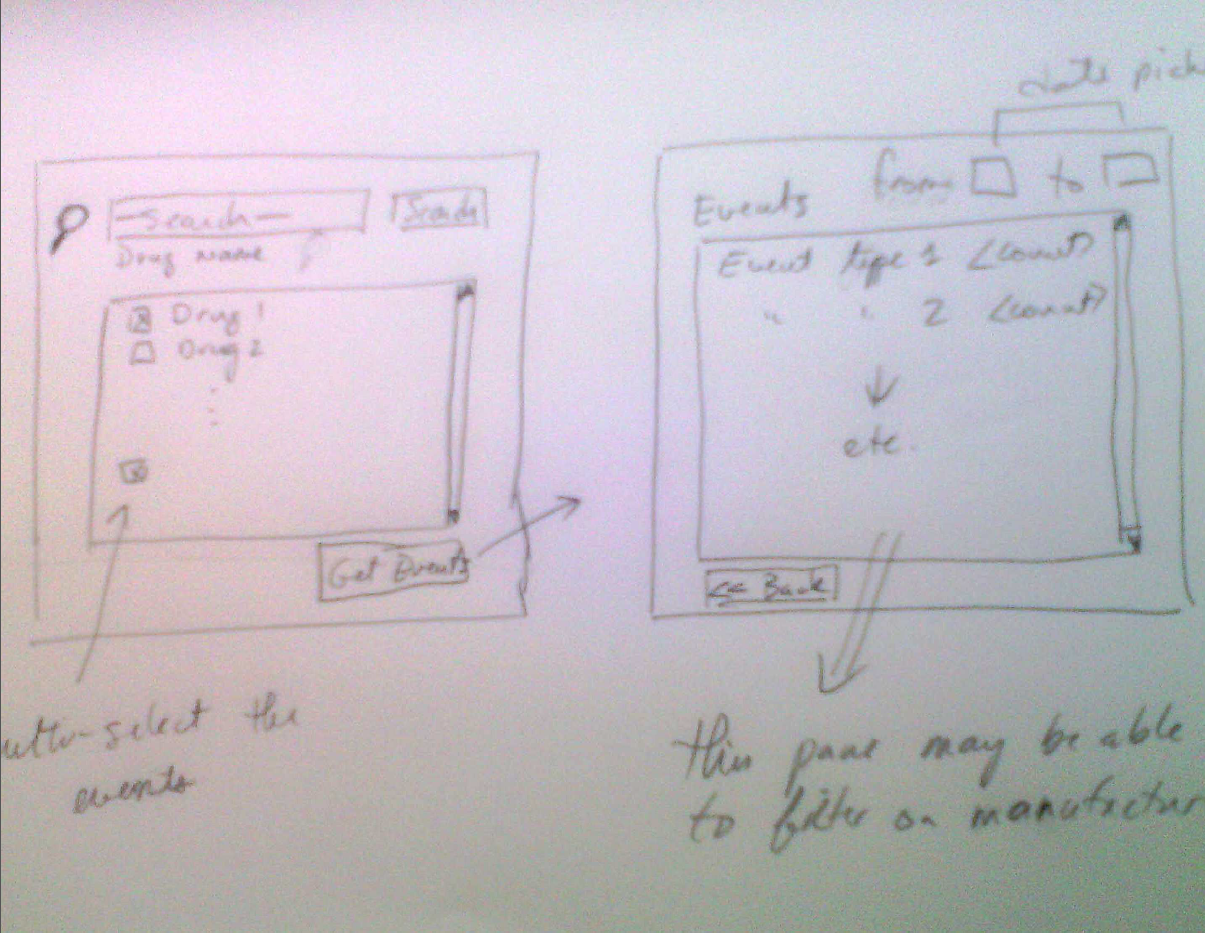 -Search-
Search
Drug name
Drug 1
Drug 2
Get Events
ulti-select the
events
date pick
from
to
Events
Event type 1 <count>
" " 2 <count>
etc.
<< Back
this pane may be able
to filter on manufactur